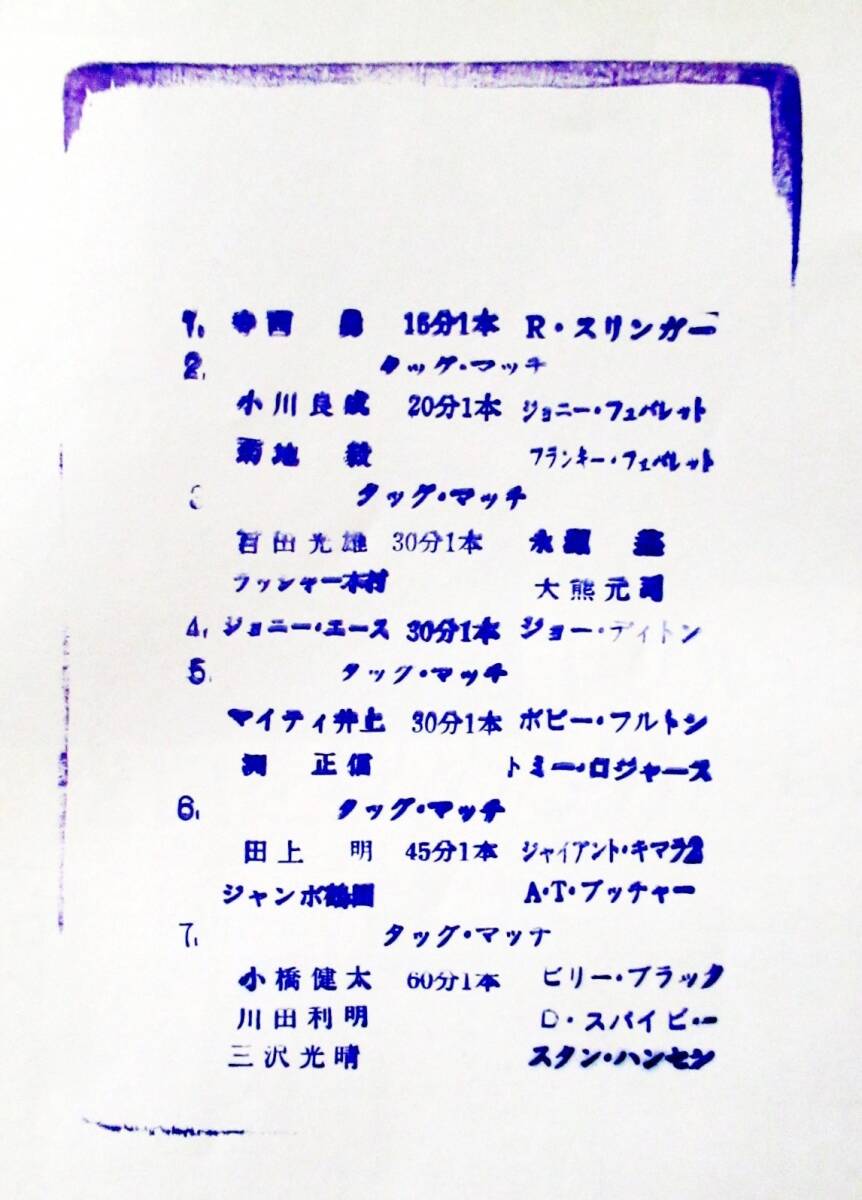 1. 寺西 勇 15分1本 R・スリンガー
2. タッグ・マッチ
小川良成 20分1本 ジョニー・フェバレット
菊地 毅 フランキー・フェバレット
3 タッグ・マッチ
百田光雄 30分1本 永源 遙
ラッシャー木村 大熊元司
4. ジョニー・エース 30分1本 ジョー・ディトン
5. タッグ・マッチ
マイティ井上 30分1本 ボビー・フルトン
渕 正信 トミー・ロジャース
6. タッグ・マッチ
田上 明 45分1本 ジャイアント・キマラ2
ジャンボ鶴田 A・T・ブッチャー
7. タッグ・マッチ
小橋健太 60分1本 ビリー・ブラック
川田利明 D・スパイビー
三沢光晴 スタン・ハンセン